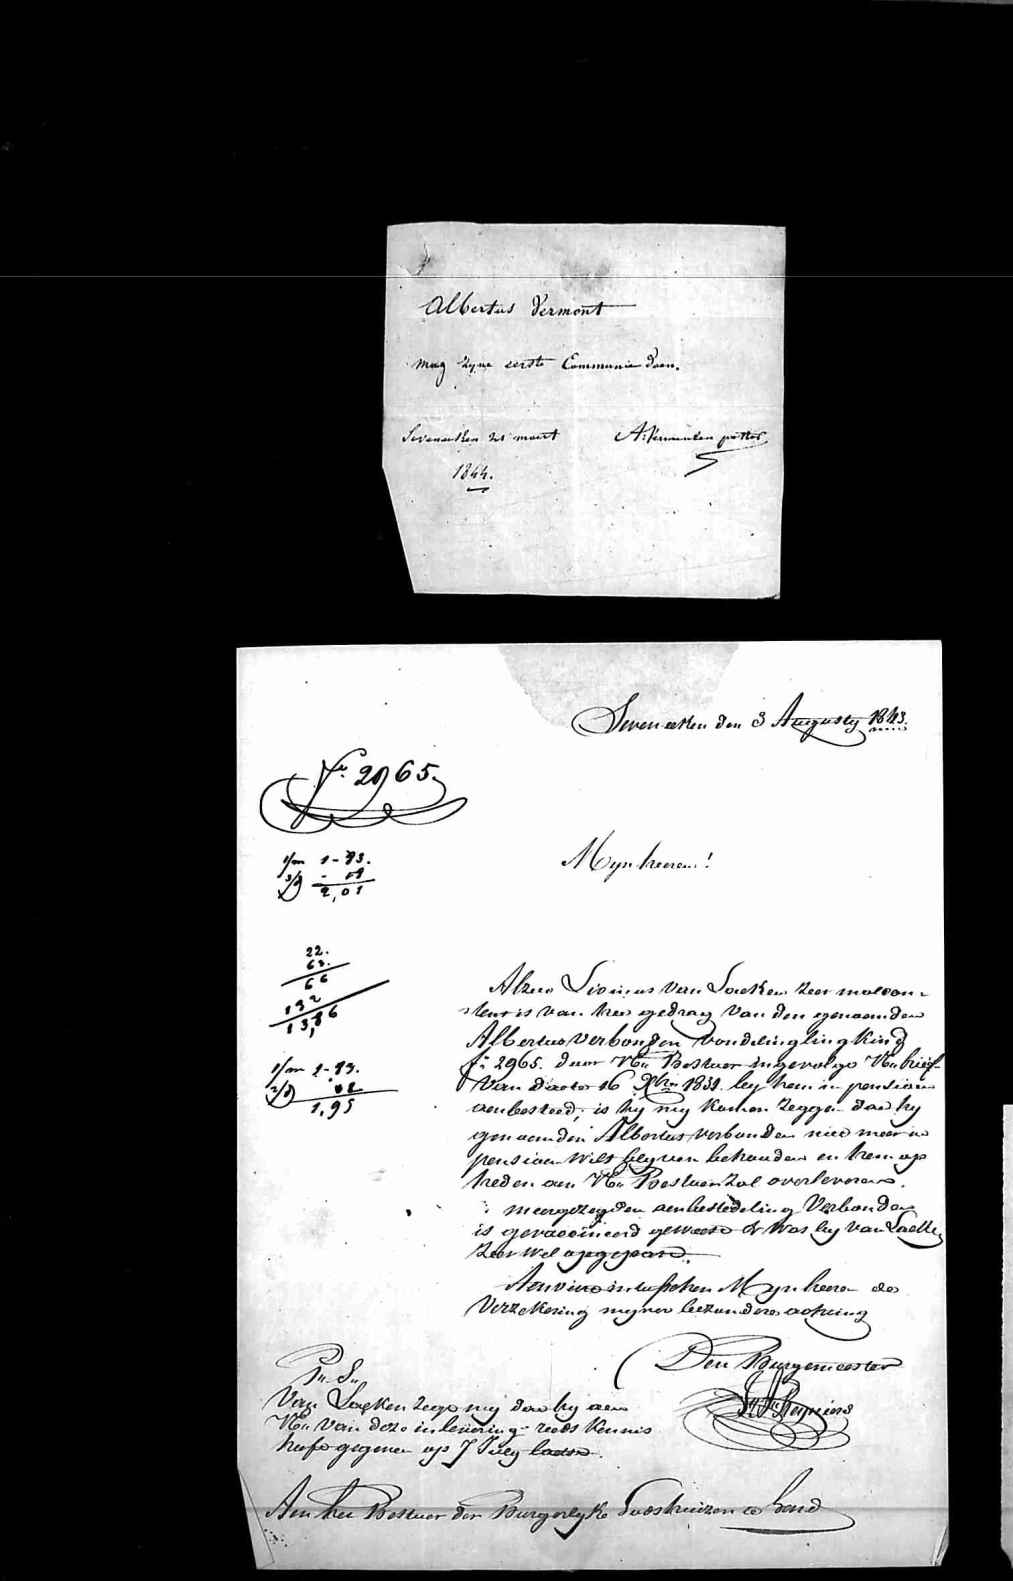 Albertus Vermont
mag zyne eerste Communie doen.
Seveneeken 21 maert
1844.
A: Vermeulen pastor
Seveneeken den 3 Augusty 1843.
Fn 2965.
Mynheeren!
1/m 1-93.
3/d - 08
2,01
22.
63.
66
132
13,86
1/m 1-93.
2/d 02
1,95
Alzoo Livinus Van Laeken zeer malcon-
tent is van het gedrag van den genaemden
Albertus Verbonden vondelingkind
fn 2965. door Uw Bestuer ingevolge Uw brief
van dato 16 Xbre 1839. by hem in pensioen
aenbesteed; is hy my komen zeggen dat hy
genaemden Albertus verbonden niet meer in
pensioen wilt blyven behouden en hem op
heden aen Uw Bestuer zal overleveren.
meergezegden aenbestedeling Verbonden
is gevaccineerd geweest & was by Van Laeken
zeer wel opgepast.
Aenveird intusschen Mynheeren de
Verzekering myner bezondere achting
Den Burgemeester
P. S.
Van Laeken zegt my dat hy aen
Uw van deze inlevering reeds kennis
heeft gegeven op 7 July laest.
Aen het Bestuer der Burgerlyke Godshuizen te Gend